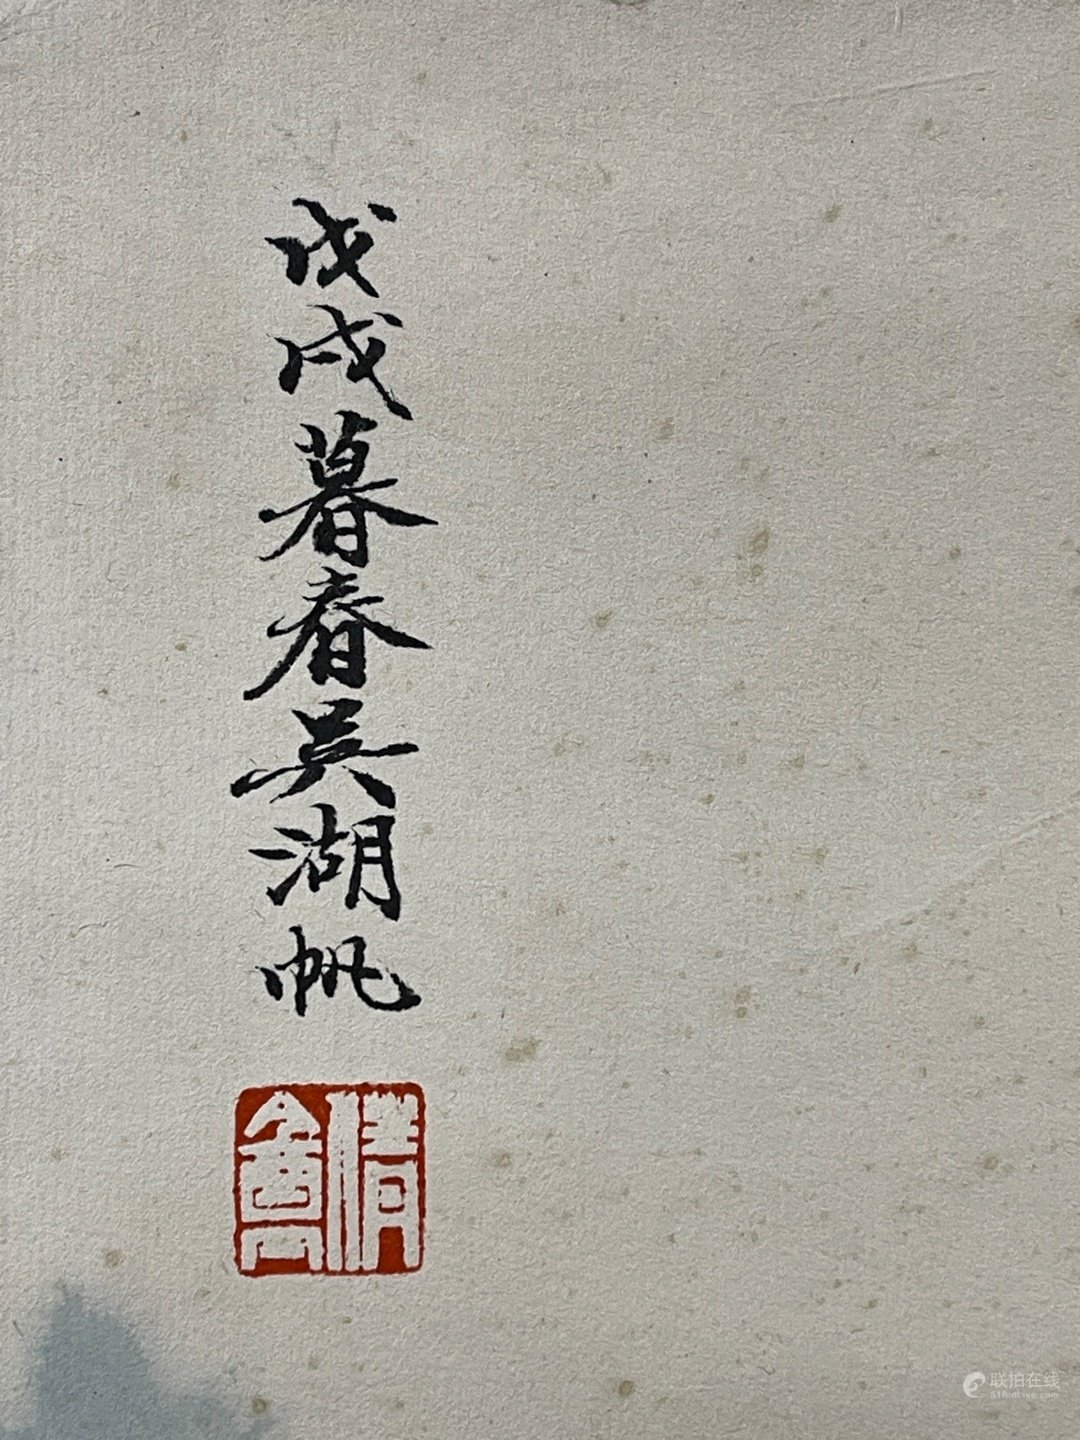 戊戌暮春吴湖帆
倩盦
联拍在线
51bidlive.com